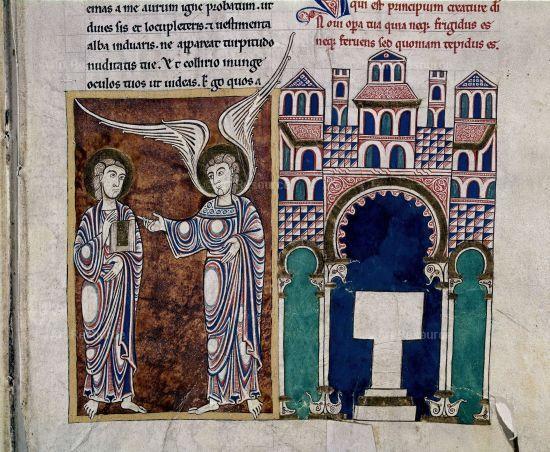 emas a me aurum igne probatum. ut
diues sis et locupleteris. & uestimenta
alba induaris. ne appareat turpitudo
nuditatis tue. Et collirio inunge
oculos tuos ut uideas. Ego quos a
qui est principium creature di
Noui opa tua quia neq; frigidus es
neq; feruens sed quoniam tepidus es.